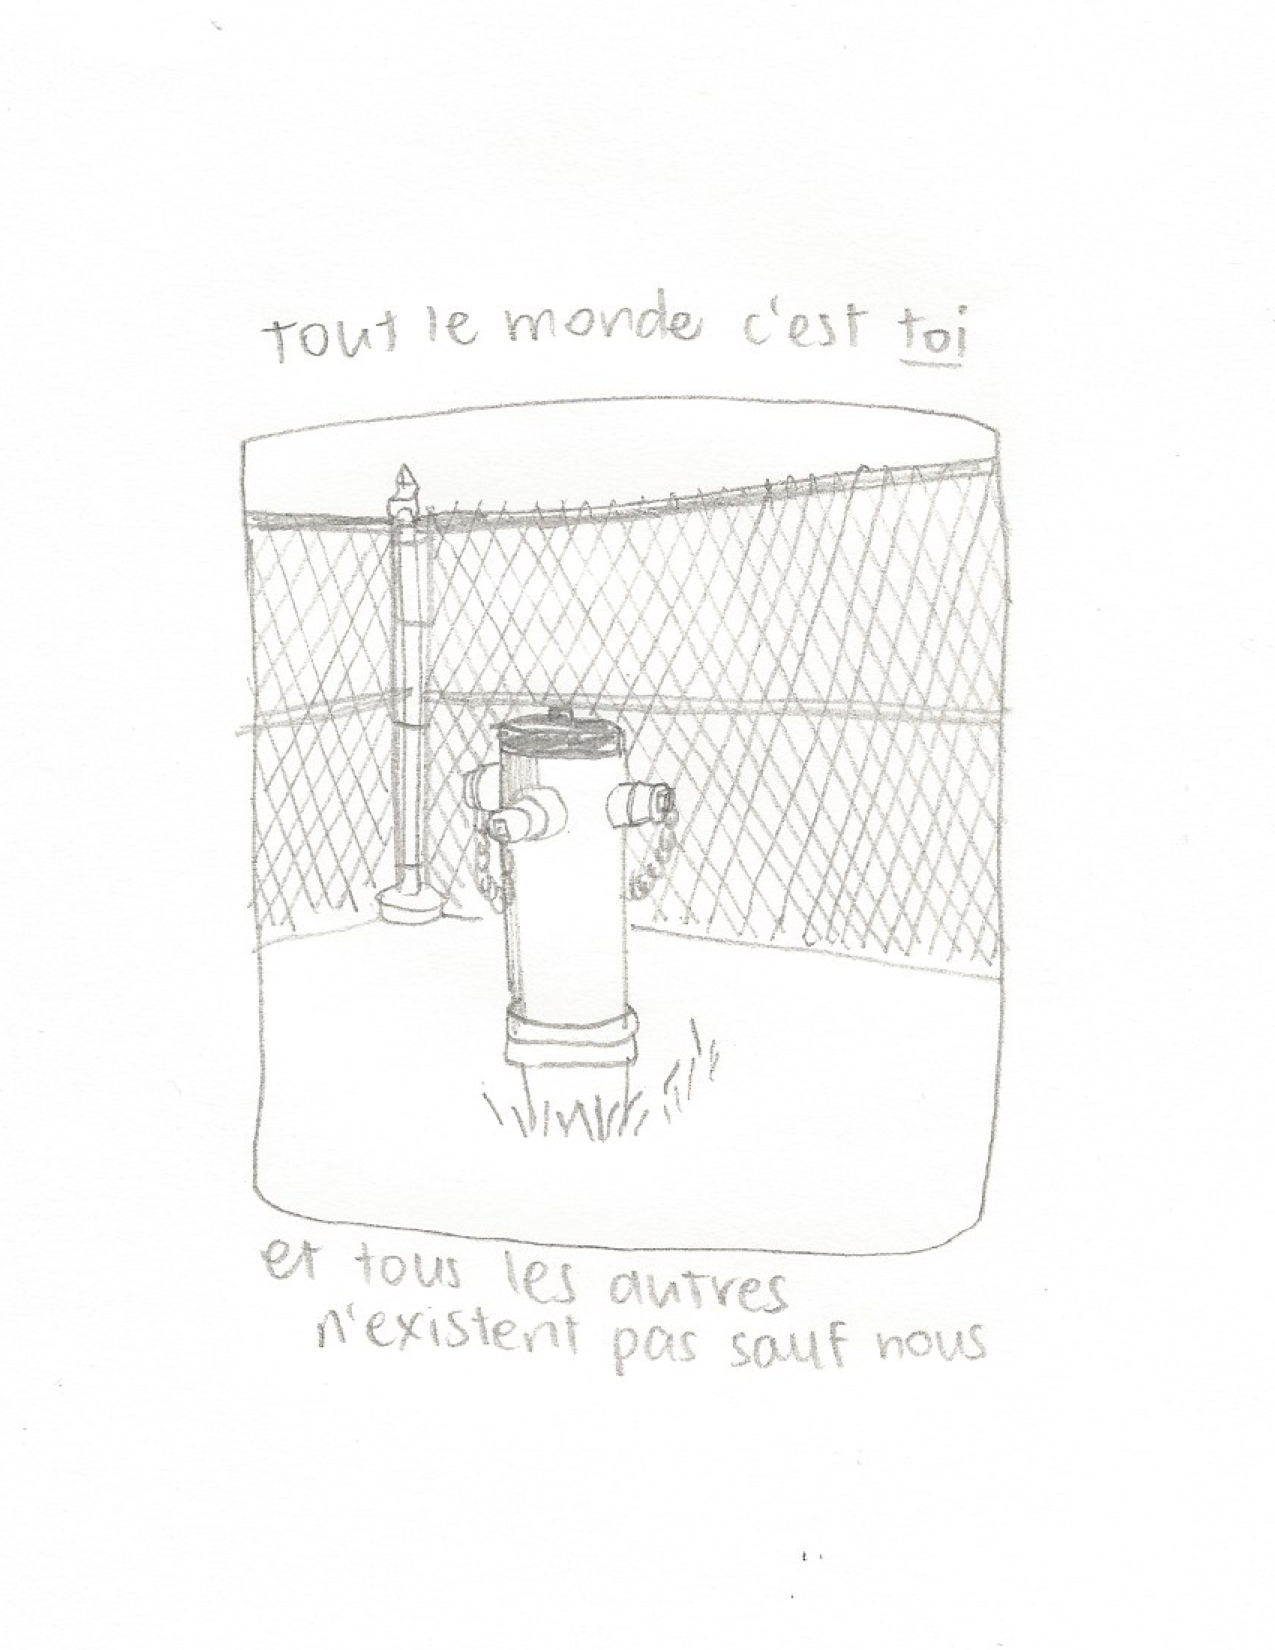 tout le monde c'est toi
et tous les autres
n'existent pas sauf nous